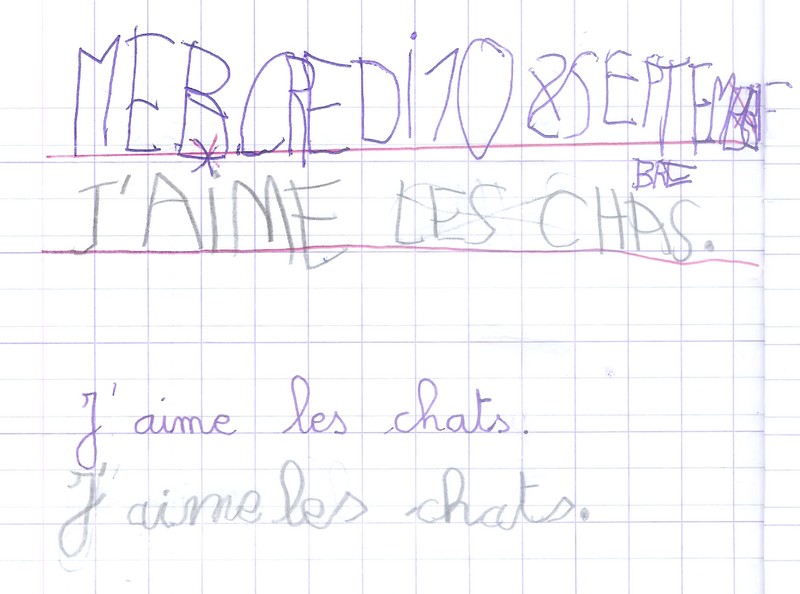 MERCREDI 10 SEPTEM
BRE
J'AIME LES CHAS.
J'aime les chats.
J'aime les chats.